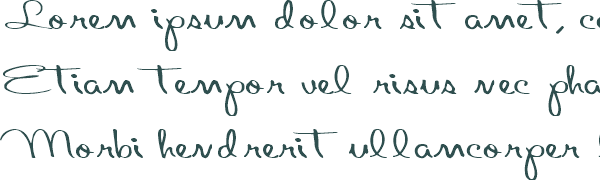 Lorem ipsum dolor sit amet, co
Etiam tempor vel risus nec pha
Morbi hendrerit ullamcorper